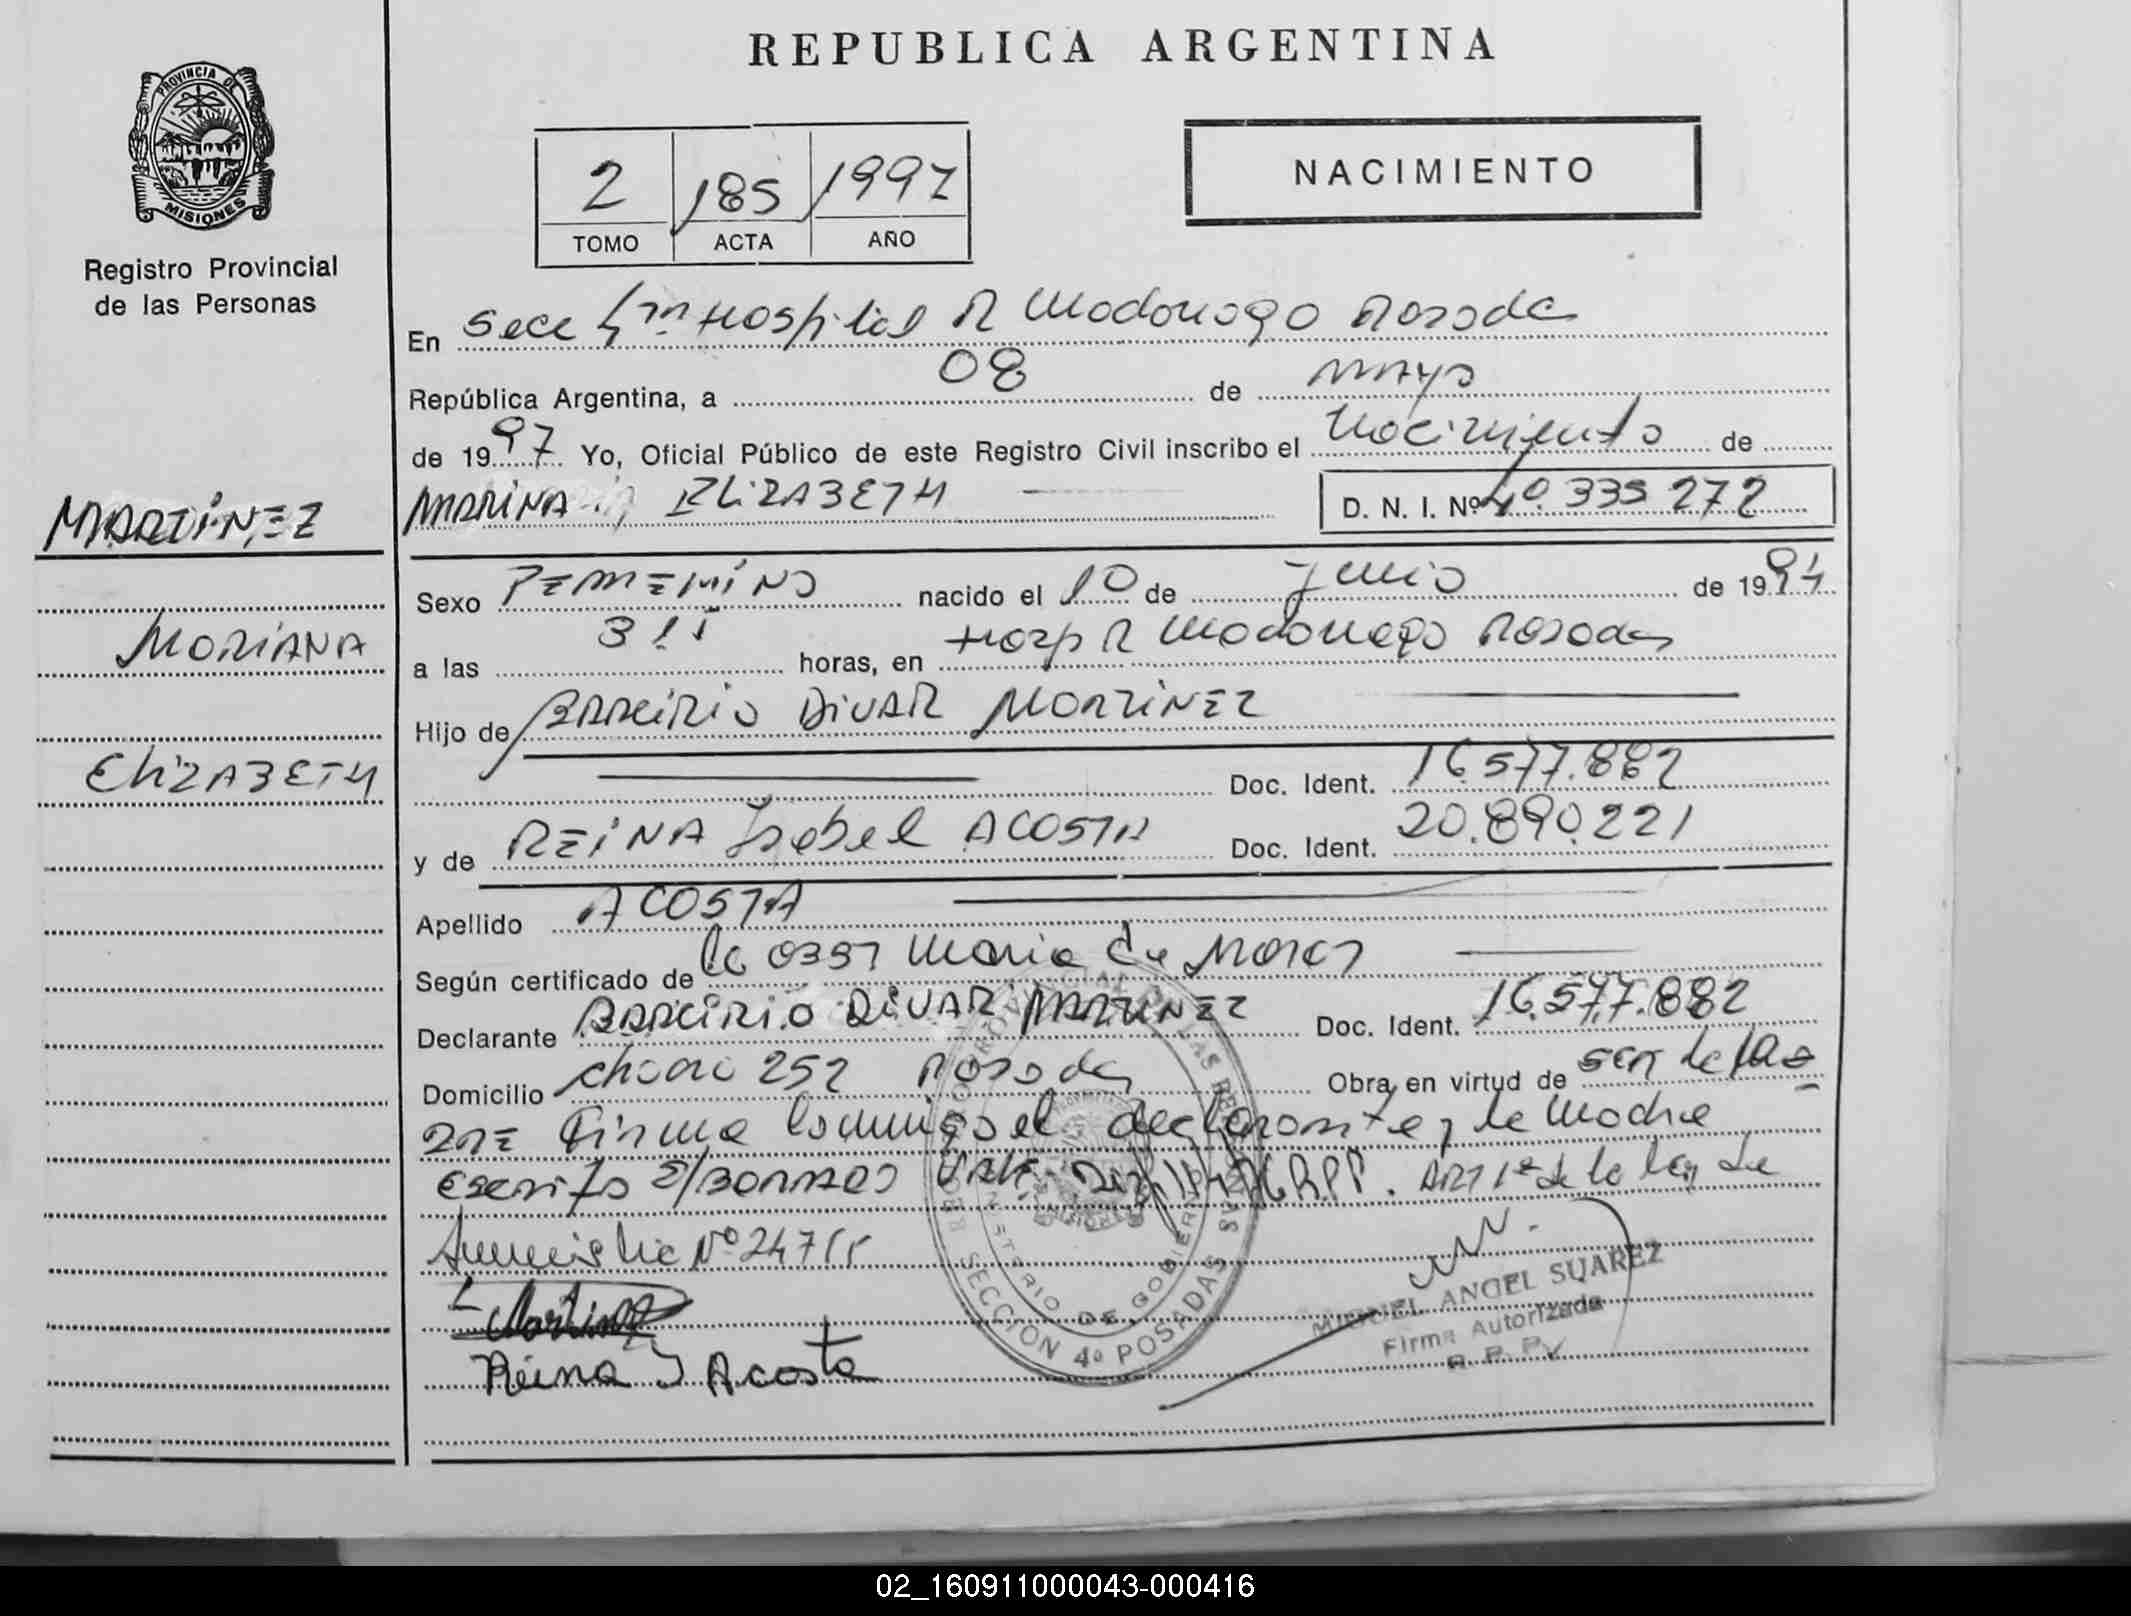 REPUBLICA ARGENTINA
PROVINCIA DE
MISIONES
Registro Provincial
de las Personas
2 185 1997
TOMO ACTA AÑO
NACIMIENTO
En Secc 4ta Hospital R Madariaga Posadas
República Argentina, a 08 de mayo
de 1997 Yo, Oficial Público de este Registro Civil inscribo el Nacimiento de
MARTINEZ
ELIZABETH D. N. I. Nº 40.335 272
Sexo FEMENINO nacido el 10 de de 1994
MARIANA
a las horas, en Hosp R Madariaga Posadas
Hijo de DIVAR MARTINEZ
ELIZABETH
Doc. Ident. 16.577.882
y de REINA Isabel ACOSTA Doc. Ident. 20.890.221
Apellido ACOSTA
Según certificado de Maria de
Declarante DIVAR MARTINEZ Doc. Ident. 16.577.882
Domicilio 252 Posadas Obra en virtud de ser de la
firma conmigo el declarante y la madre
Escrito S/BORRADO VALE RPP. ART 1º de la ley de
Amnistia Nº 247
Martinez
Reina I Acosta
SECCION 4º POSADAS
MINISTERIO DE GOBIERNO
MIGUEL ANGEL SUAREZ
Firma Autorizada
R. P. P.
02_160911000043-000416